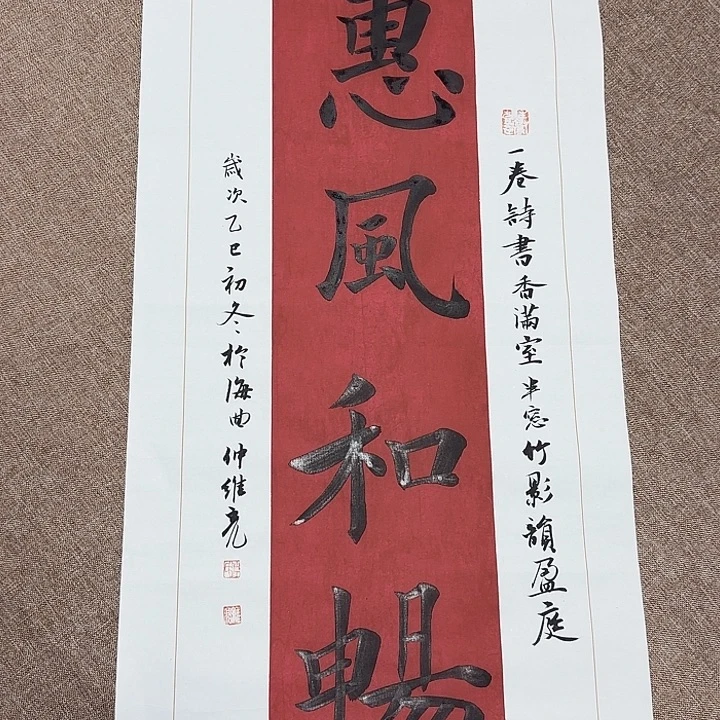 一卷詩書香滿室半窓竹影韻盈庭
惠風和暢
歲次乙巳初冬於海曲仲維亮